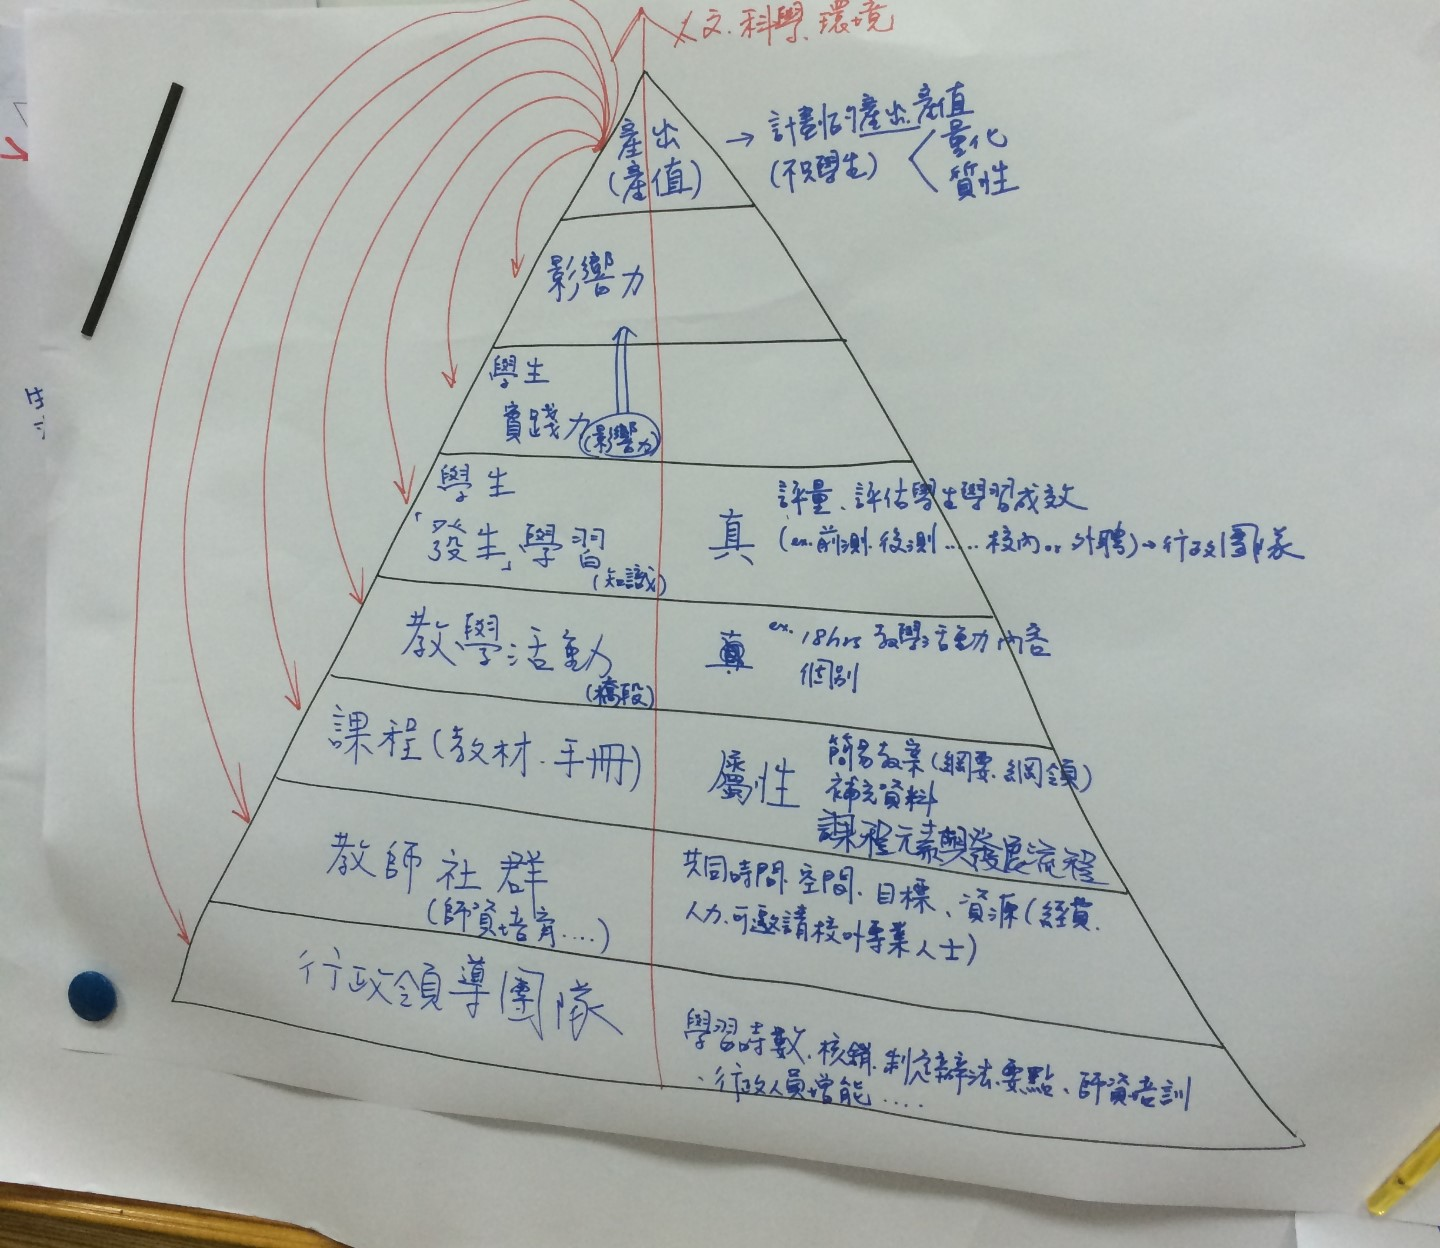 人文.科學.環境
產出
(產值)
→ 計劃的產出.產值
(不只學生)
量化
質性
影響力
學生
實踐力(影響力)
學生
「發生」學習
(知識)
真
評量、評估學生學習成效
(ex.前測.後測.....校內or外聘)→行政團隊
教學活動
(橋段)
真
ex. 18hrs 教學活動內容
個別
課程(教材.手冊)
屬性
簡易教案(綱要.綱領)
補充資料
課程元素與發展流程
教師社群
(師資培育....)
共同時間.空間.目標、資源(經費.
人力.可邀請校外專業人士)
行政領導團隊
學習時數.核銷.制定辦法.要點、師資培訓
、行政人員增能....